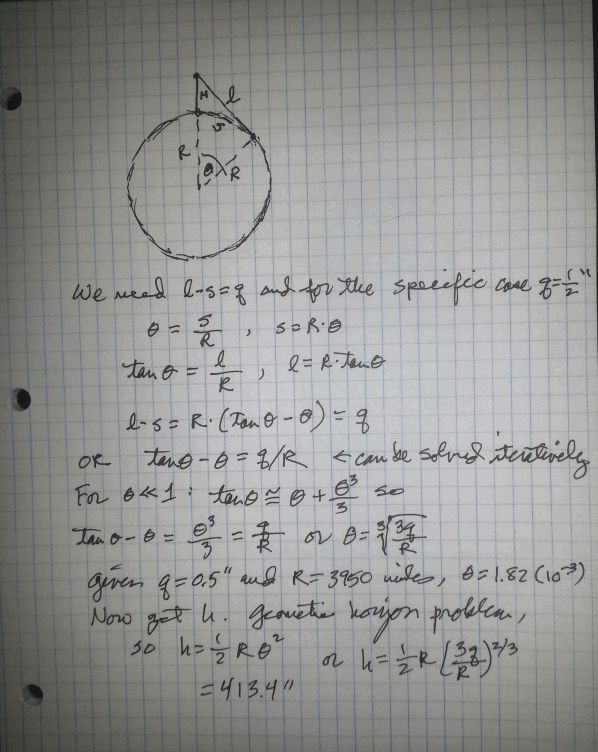 H
l
S
R
θ
R
We need l-s=q and for the specific case q=1/2"
θ = s/R , s=R·θ
tanθ = l/R , l=R·tanθ
l-s=R·(tanθ-θ)=q
OR tanθ-θ=q/R ← can be solved iteratively
For θ≪1: tanθ ≅ θ + θ³/3 so
tanθ-θ = θ³/3 = q/R or θ=∛(3q/R)
given q=0.5" and R=3950 miles, θ=1.82(10⁻³)
Now get h. Geometric horizon problem,
so h=1/2 Rθ² or h=1/2 R(3q/R)^2/3
=413.4"